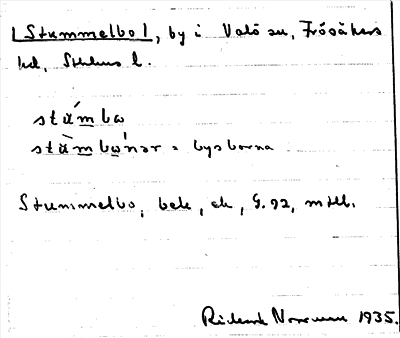 [Stummelbo], by i Valö sn, Frösåkers
hd, Sthlms l.
stúmbω
stùmbὼnər = bysborna
Stummelbo, bek, ek, G. 92, mtl.
Rickard Norrman 1935.